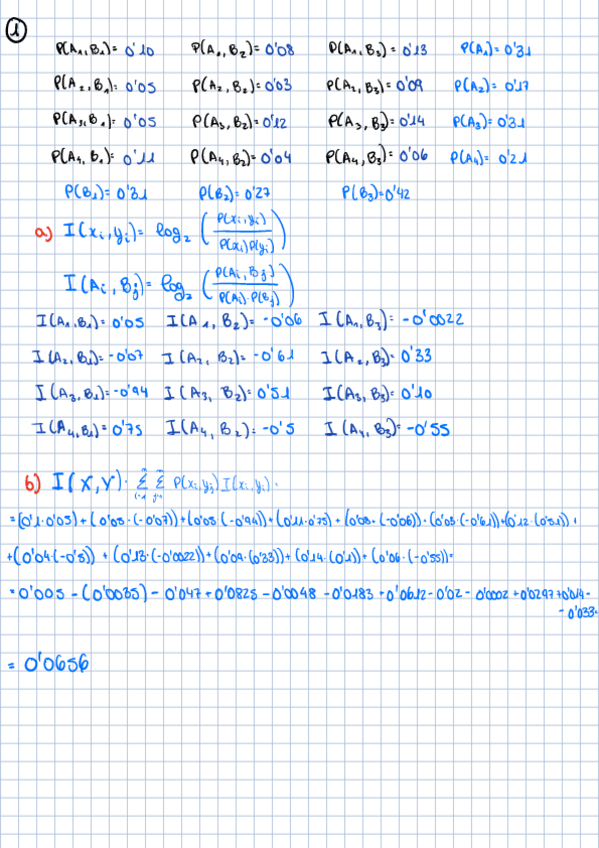 1
P(A₁,B₁)= 0'10 P(A₁,B₂)= 0'08 P(A₁,B₃)= 0'13 P(A₁)= 0'31
P(A₂,B₁)= 0'05 P(A₂,B₂)= 0'03 P(A₂,B₃)= 0'09 P(A₂)= 0'17
P(A₃,B₁)= 0'05 P(A₃,B₂)= 0'12 P(A₃,B₃)= 0'14 P(A₃)= 0'31
P(A₄,B₁)= 0'11 P(A₄,B₂)= 0'04 P(A₄,B₃)= 0'06 P(A₄)= 0'21
P(B₁)= 0'31 P(B₂)= 0'27 P(B₃)= 0'42
a) I(xᵢ,yᵢ)= log₂ (P(xᵢ,yᵢ) / P(xᵢ)P(yᵢ))
I(Aᵢ,Bⱼ)= log₂ (P(Aᵢ,Bⱼ) / P(Aᵢ)·P(Bⱼ))
I(A₁,B₁)= 0'05 I(A₁,B₂)= -0'06 I(A₁,B₃)= -0'0022
I(A₂,B₁)= -0'07 I(A₂,B₂)= -0'61 I(A₂,B₃)= 0'33
I(A₃,B₁)= -0'94 I(A₃,B₂)= 0'51 I(A₃,B₃)= 0'10
I(A₄,B₁)= 0'75 I(A₄,B₂)= -0'5 I(A₄,B₃)= -0'55
b) I(X,Y)= Σ Σ P(xᵢ,yⱼ) I(xᵢ,yⱼ)=
=(0'1·0'05)+(0'05·(-0'07))+(0'05·(-0'94))+(0'11·0'75)+(0'08·(-0'06))·(0'03·(-0'61))+(0'12·(0'51))+
+(0'04·(-0'5))+(0'13·(-0'0022))+(0'09·(0'33))+(0'14·(0'1))+(0'06·(-0'55))=
=0'005-(0'0035)-0'047+0'0825-0'0048-0'0183+0'0612-0'02-0'0002+0'0297+0'014-
-0'033=
= 0'0656